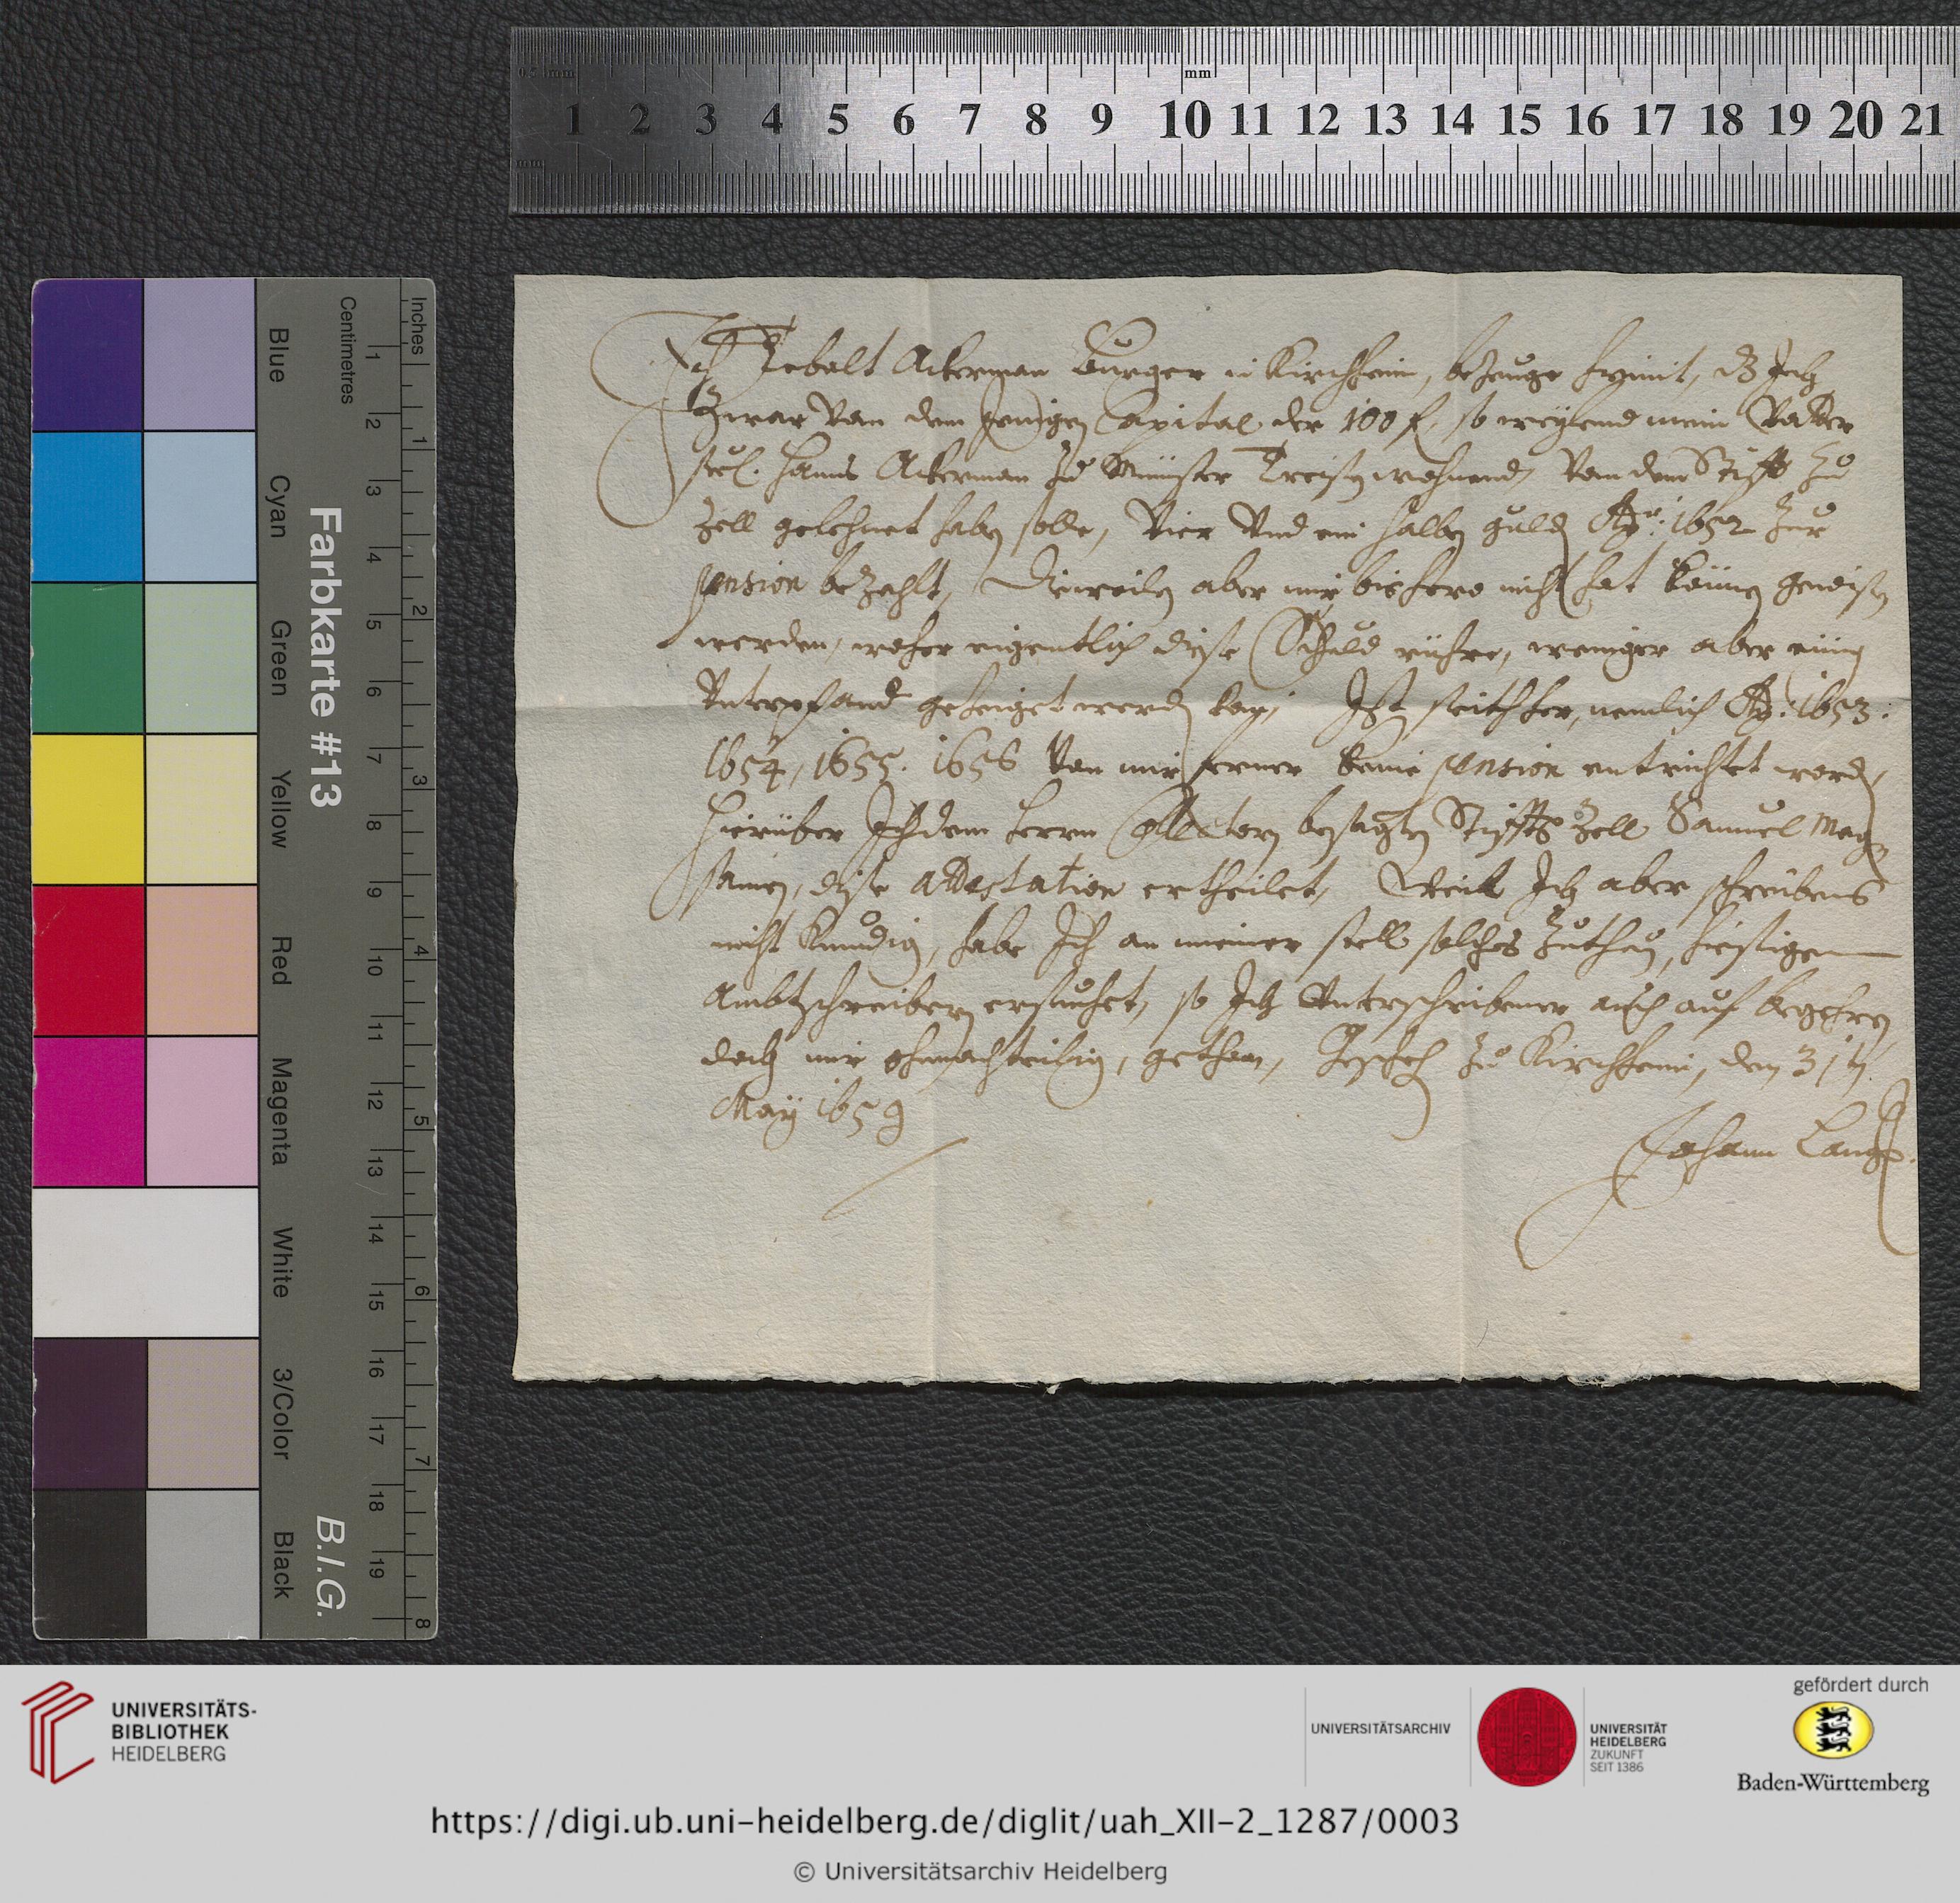 Ich Debalt Ackerman Burger in Kirchheim, bezeuge hiemit, dz Ich
Zwar Von dem jenigen Capital der 100 f. so weylend mein Vatter
seel. Hanns Ackerman zu Münster Dreisen wohnend, Von dem Stifft zu
Zell gelehnet haben solle, Vier Vnd ein halben guld Aº: 1652 zur
pension bezahlt, Dieweilen aber mir bishero nicht hat können gewisen
werden, woher eigentlich diese Schuld rühre, weniger aber einig
Vnterpfand gezeiget werden kan, Ist seithher, nemlich Aº: 1653.
1654, 1655. 1656 Von mir ferner keine pension entrichtet word,
Hierüber Ich dem Herrn Collectorn besagten Stiffts Zell Samuel
diese attestation ertheilet, Weil Ich aber schreibens
nicht Kundig, habe Ich an meiner stell solches zuthun, hiesigen
Ambtschreibern ersuchet, so Ich Vnterschribener auch auf begehren
doch mir ohnnachtheilig, gethan, Gescheh zu Kirchheim, den 31t
May 1659
Johann Lang
0.5 mm
mm
1 2 3 4 5 6 7 8 9 10 11 12 13 14 15 16 17 18 19 20 21
mm
Inches 1 2 3 4 5 6 7 8
Centimetres 1 2 3 4 5 6 7 8 9 10 11 12 13 14 15 16 17 18 19
Farbkarte #13 B.I.G.
Blue Cyan Green Yellow Red Magenta White 3/Color Black
UNIVERSITÄTS-
BIBLIOTHEK
HEIDELBERG
UNIVERSITÄTSARCHIV
UNIVERSITÄT
HEIDELBERG
ZUKUNFT
SEIT 1386
gefördert durch
Baden-Württemberg
https://digi.ub.uni-heidelberg.de/diglit/uah_XII-2_1287/0003
© Universitätsarchiv Heidelberg